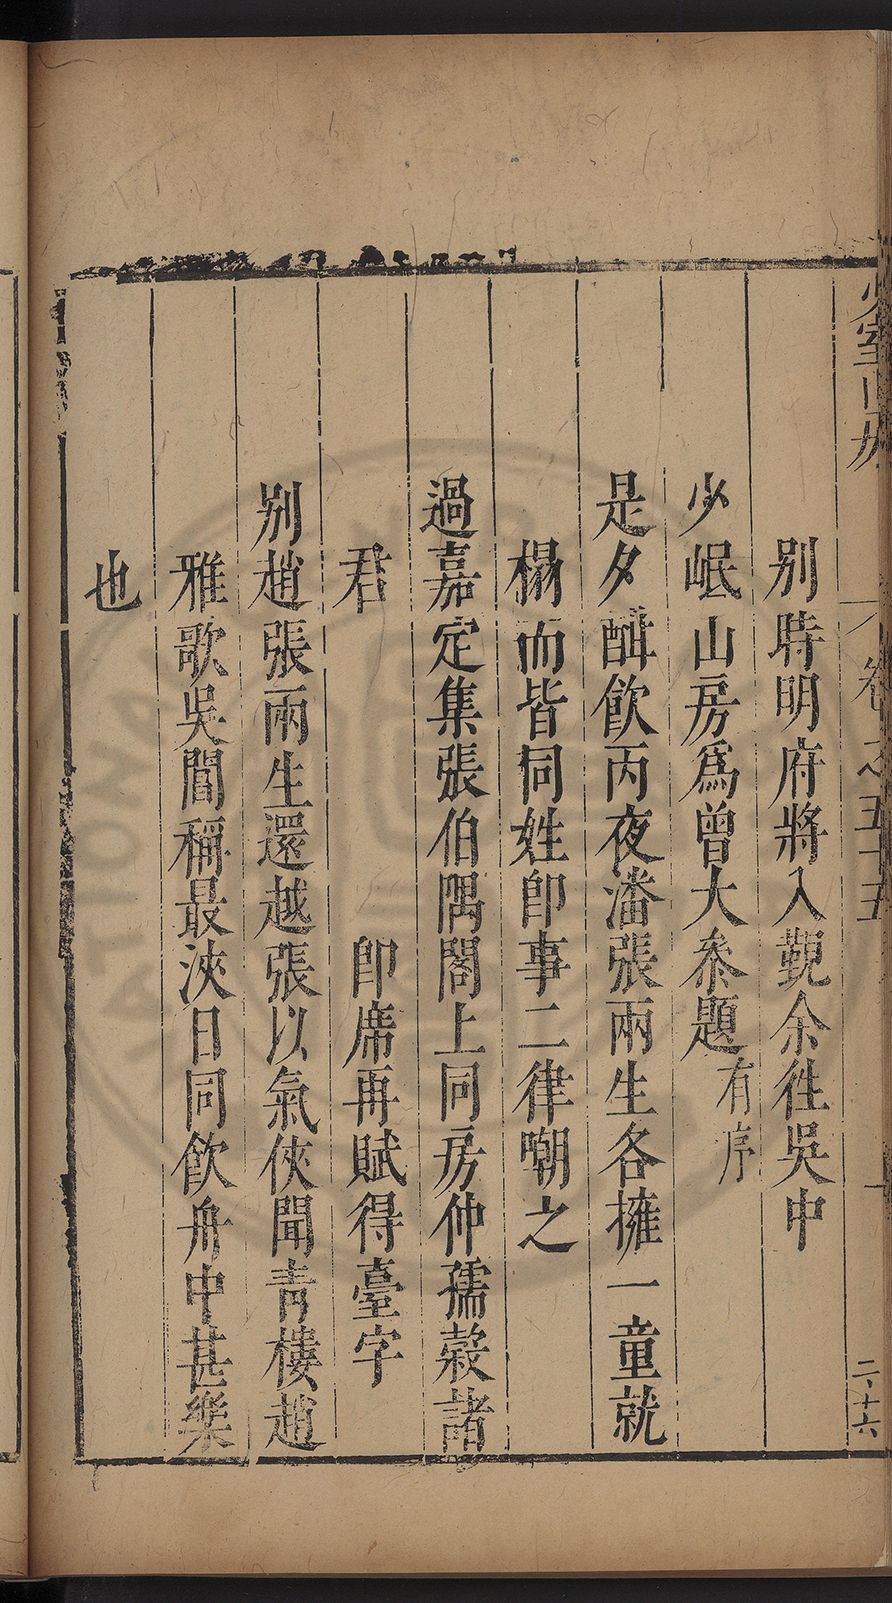 少室山房 卷之五十五 二十六
別時明府將入覲余往吳中
少岷山房爲曾大叅題有序
是夕酣飲丙夜潘張兩生各擁一童就
榻而皆同姓卽事二律嘲之
過嘉定集張伯隅閣上同房仲孺榖諸
君 卽席再賦得臺字
別趙張兩生還越張以氣俠聞靑樓趙
雅歌吳閶稱最浹日同飲舟中甚樂
也